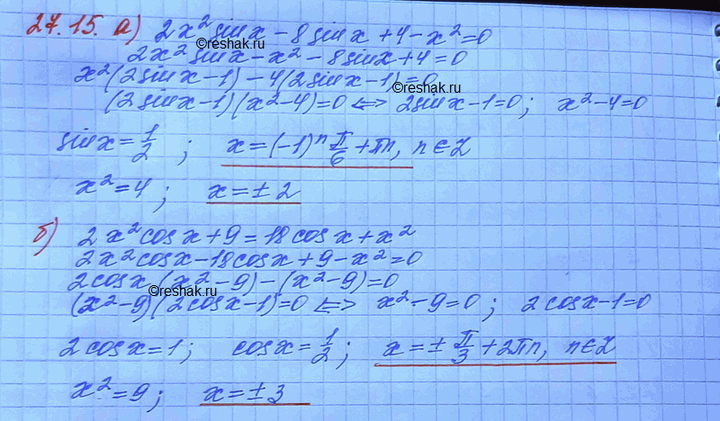 27.15. а) 2x² sin x - 8 sin x + 4 - x² = 0
©reshak.ru
2x² sin x - x² - 8 sin x + 4 = 0
x²(2 sin x - 1) - 4(2 sin x - 1) = 0
©reshak.ru
(2 sin x - 1)(x² - 4) = 0 <=> 2 sin x - 1 = 0; x² - 4 = 0
sin x = 1/2; x = (-1)ⁿ π/6 + πn, n ∈ Z
x² = 4; x = ± 2
б) 2x² cos x + 9 = 18 cos x + x²
2x² cos x - 18 cos x + 9 - x² = 0
2 cos x (x² - 9) - (x² - 9) = 0
©reshak.ru
(x² - 9)(2 cos x - 1) = 0 <=> x² - 9 = 0; 2 cos x - 1 = 0
2 cos x = 1; cos x = 1/2; x = ± π/3 + 2πn, n ∈ Z
x² = 9; x = ± 3